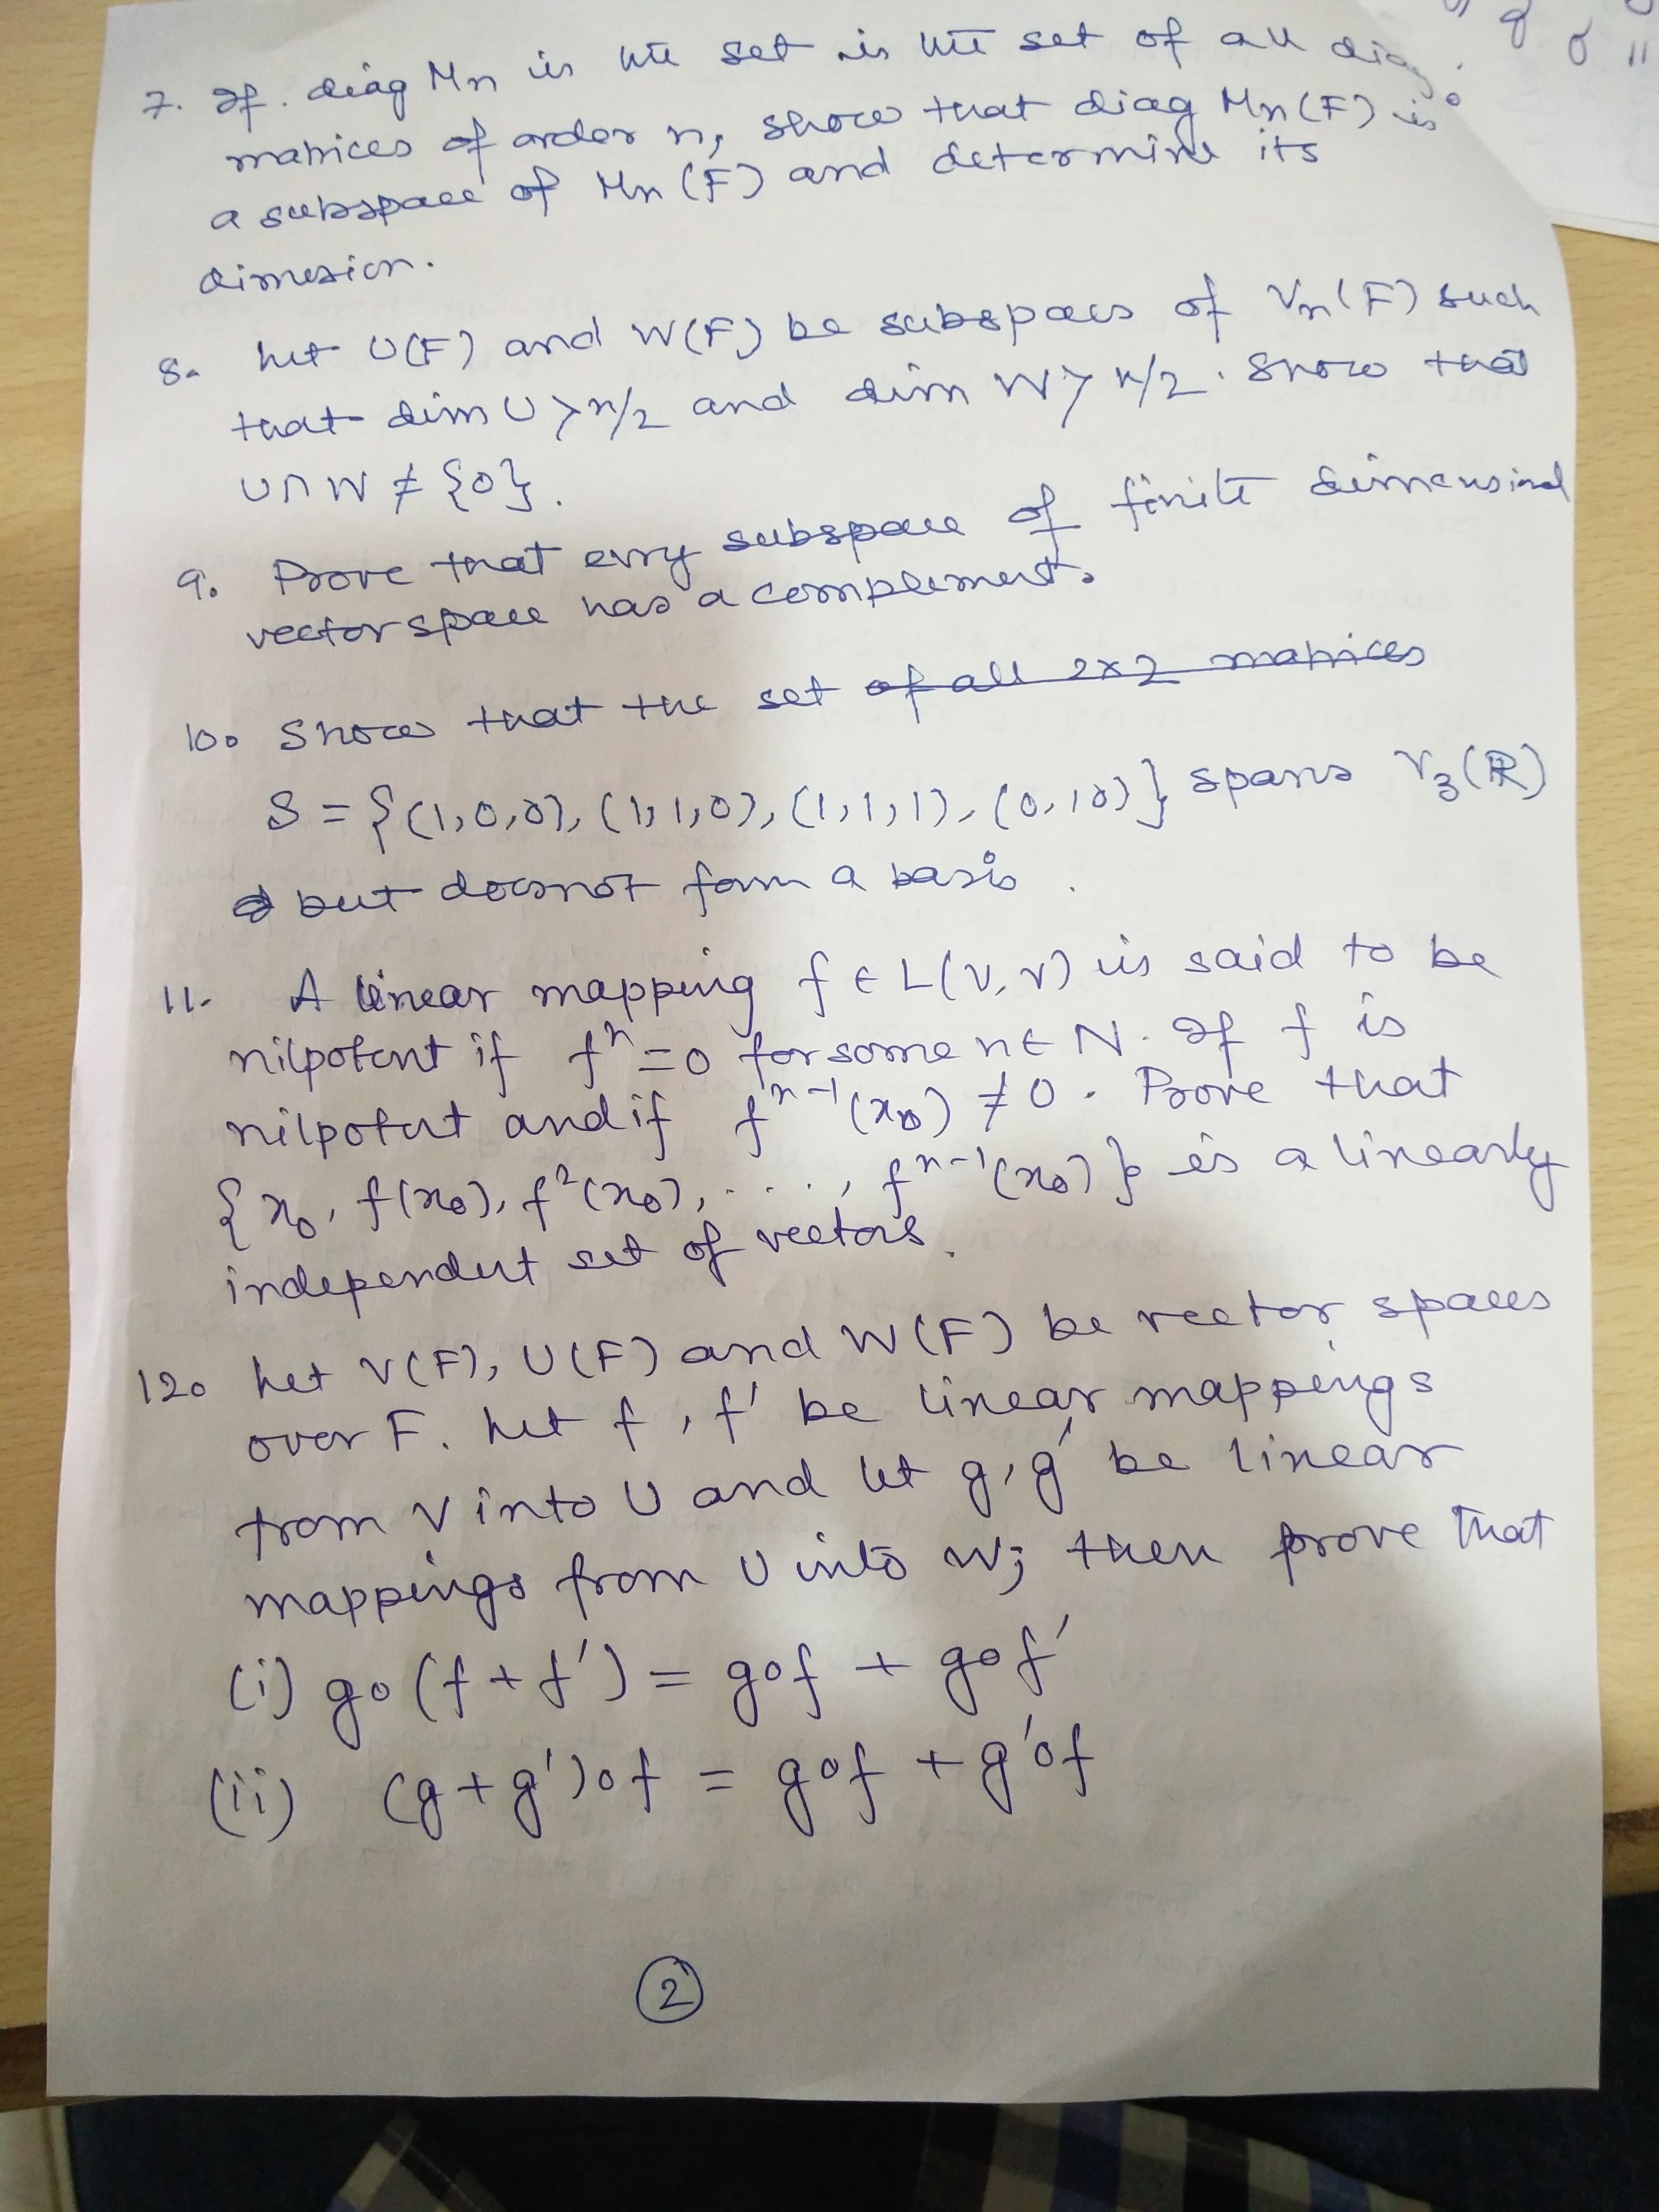 7. If. diag Mn is the set is the set of all diag.
matrices of order n, show that diag Mn(F) is
a subspace of Mn(F) and determine its
dimesion.
8. Let U(F) and W(F) be subspaces of Vn(F) such
that dim U > n/2 and dim W > n/2. Show that
U∩W ≠ {0}.
9. Prove that every subspace of finite dimensional
vector space has a complement.
10. Show that the set of all 2×2 matrices
S = {(1,0,0), (1,1,0), (1,1,1), (0,10)} spans V3(R)
but does not form a basis.
11. A linear mapping f ∈ L(V,V) is said to be
nilpotent if fⁿ = 0 for some n ∈ N. If f is
nilpotent and if fⁿ⁻¹(x₀) ≠ 0. Prove that
{x₀, f(x₀), f²(x₀), ...., fⁿ⁻¹(x₀)} is a linearly
independent set of vectors.
12. Let V(F), U(F) and W(F) be vector spaces
over F. Let f, f' be linear mappings
from V into U and let g, g' be linear
mappings from U into W; then prove that
(i) go(f+f') = gof + gof'
(ii) (g+g')of = gof + g'of
2